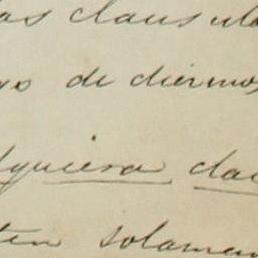 las clausula
de diermos
lquiera cla
ten solamen